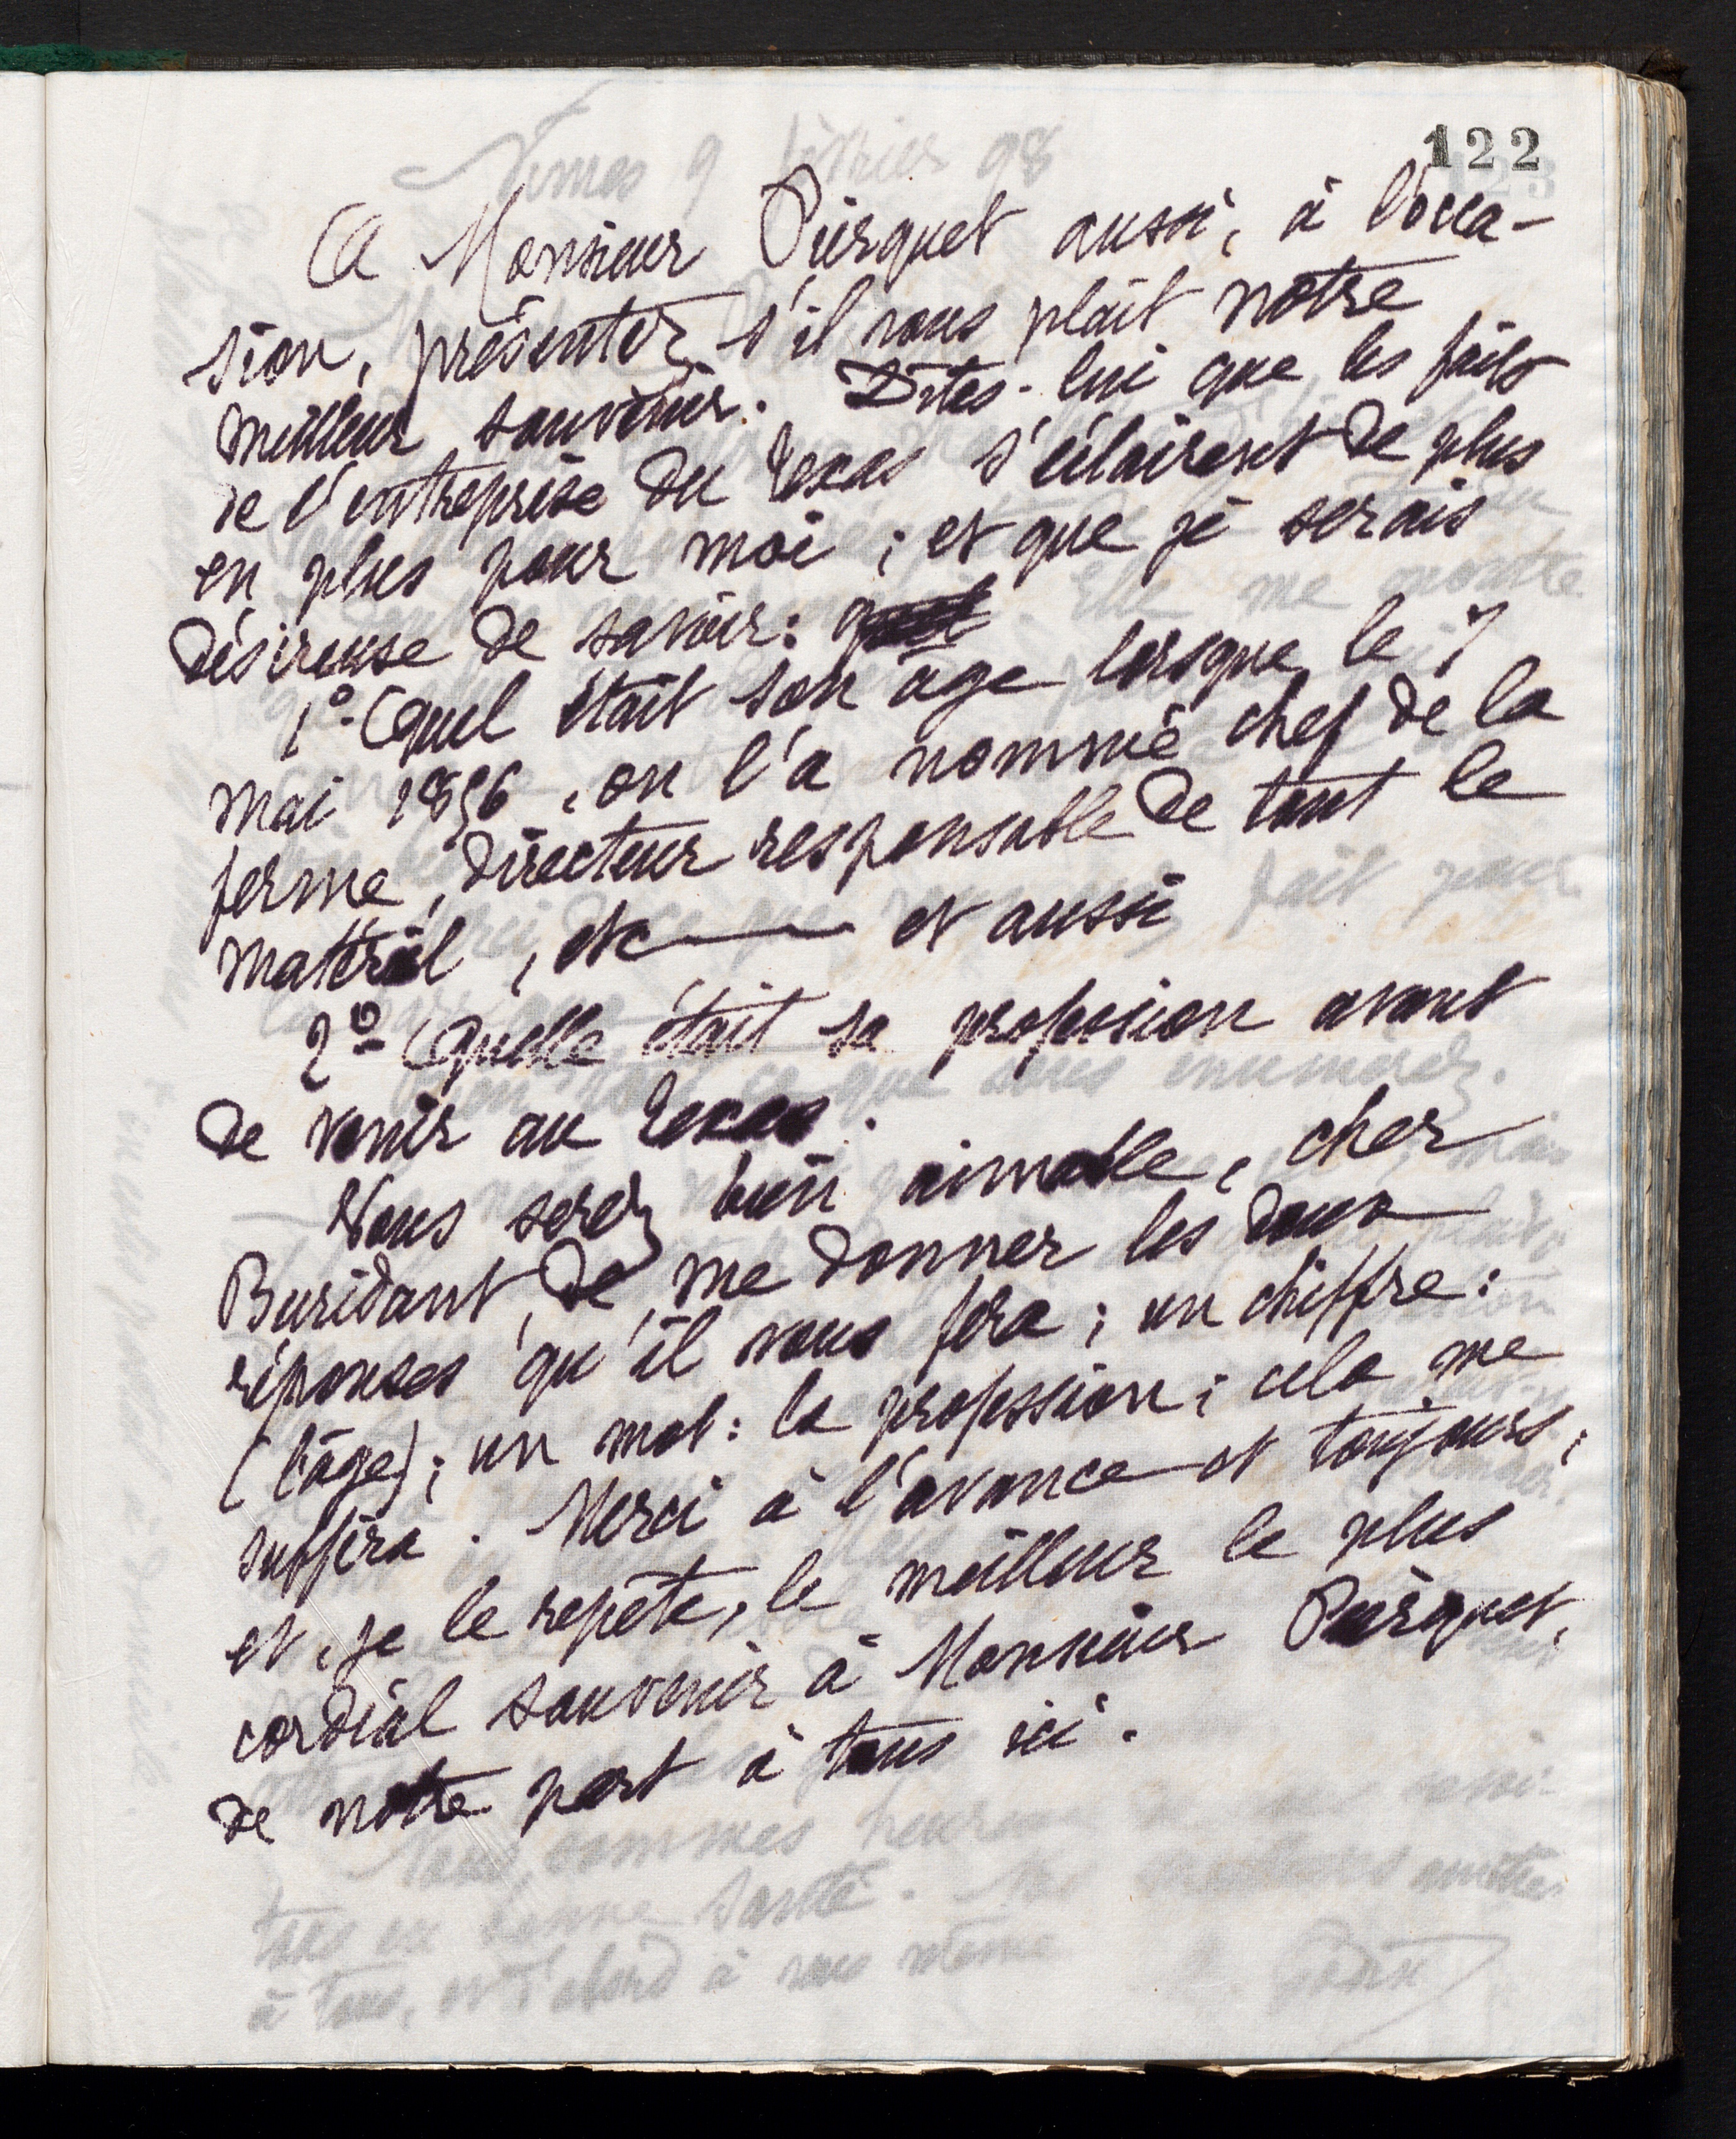 122
A Monsieur Pierquet aussi, à l'occa-
sion, présentez s'il vous plaît notre
meilleur souvenir. Dites-lui que les faits
de l'entreprise du Texas s'éclairent de plus
en plus pour moi ; et que je serais
désireuse de savoir :
1º- Quel était son âge lorsque, le 7
mai 1856, on l'a nommé chef de la
ferme, directeur responsable de tout le
matériel, etc —— et aussi
2º- Quelle était sa profession avant
de venir au Texas.
Vous serez bien aimable, cher
Buridant, de me donner les deux
réponses qu'il vous fera ; un chiffre :
(l'âge) ; un mot : la profession ; cela me
suffira. Merci à l'avance et toujours ;
et, je le repète, le meilleur le plus
cordial souvenir à Monsieur Pierquet,
de notre part à tous ici.